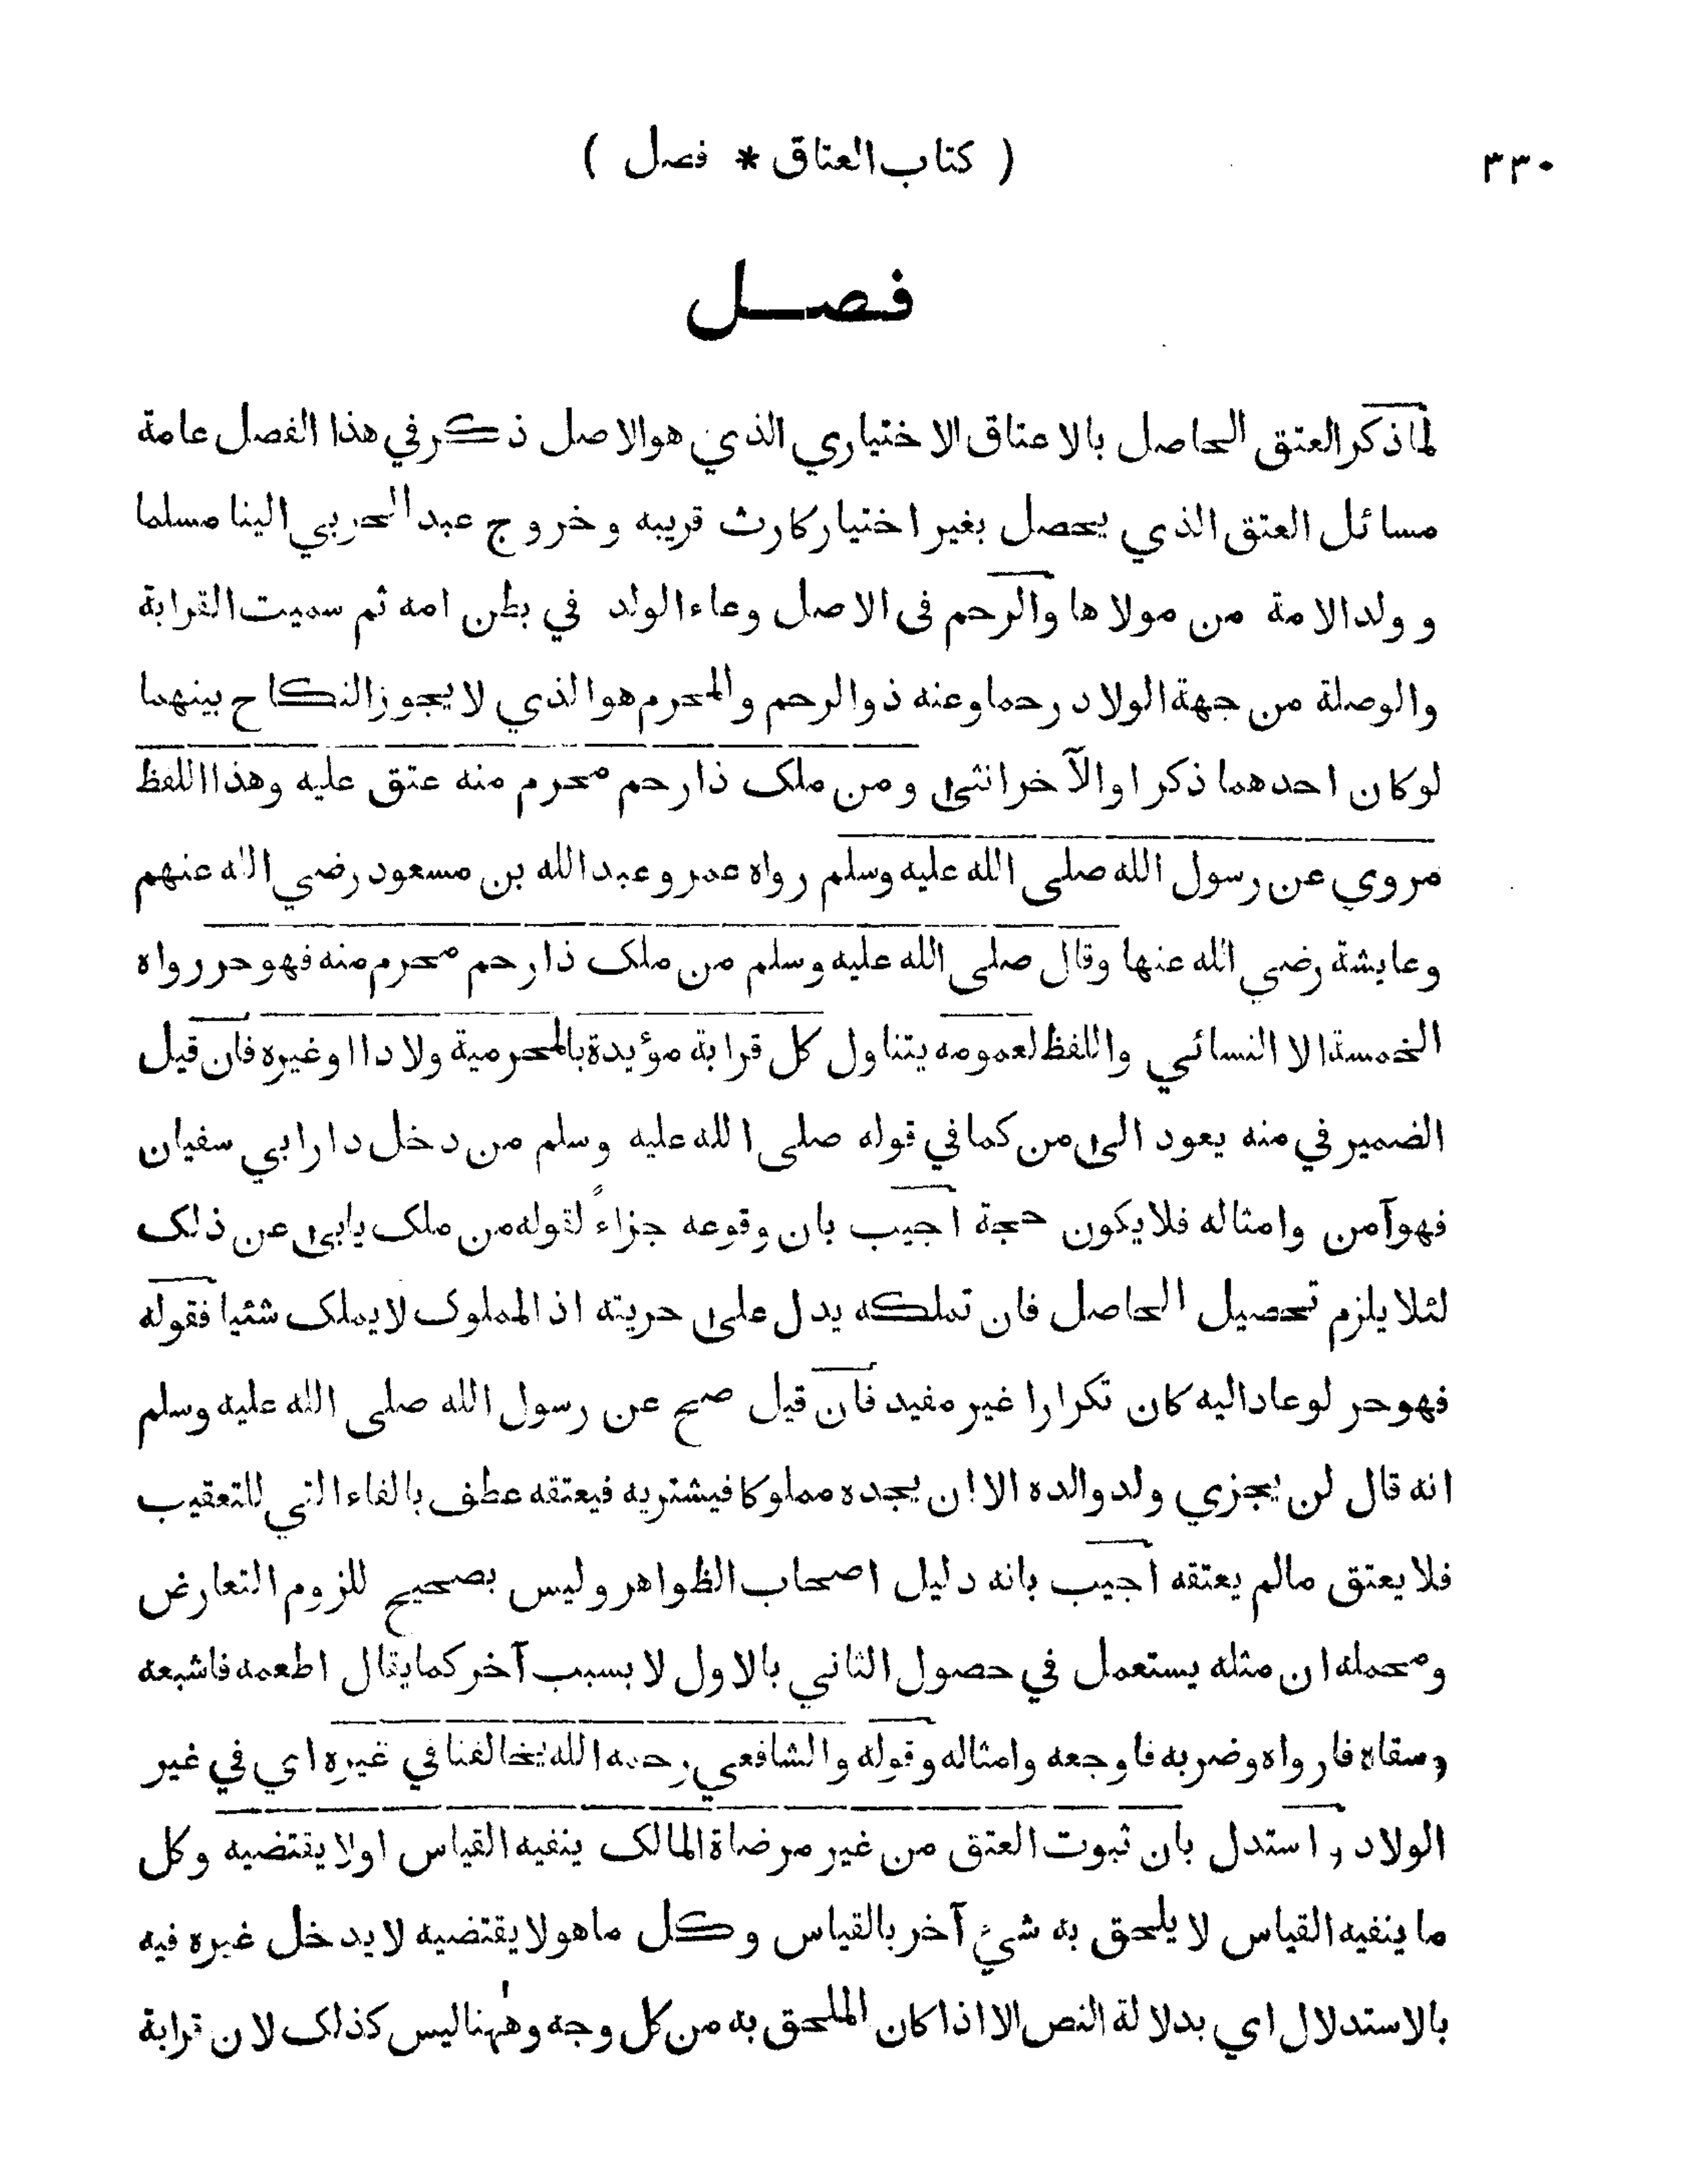 ٣٣٠ ( كتاب العتاق * فصل )
فصل
لما ذكر العتق الحاصل بالاعتاق الاختياري الذي هو الاصل ذكر في هذا الفصل عامة
مسائل العتق الذي يحصل بغير اختيار كارث قريبه وخروج عبد الحربي الينا مسلما
و ولد الامة من مولاها والرحم فى الاصل وعاء الولد في بطن امه ثم سميت القرابة
والوصلة من جهة الولاد رحما وعنه ذوالرحم والمحرم هو الذي لا يجوز النكاح بينهما
لوكان احدهما ذكرا والآخر انثى ومن ملك ذا رحم محرم منه عتق عليه وهذا اللفظ
مروي عن رسول الله صلى الله عليه وسلم رواه عمر وعبد الله بن مسعود رضي الله عنهم
وعايشة رضي الله عنها وقال صلى الله عليه وسلم من ملك ذا رحم محرم منه فهو حر رواه
الخمسة الا النسائي واللفظ لعمومه يتناول كل قرابة مؤيدة بالمحرمية ولادا اوغيره فان قيل
الضمير في منه يعود الى من كما في قوله صلى الله عليه وسلم من دخل دار ابي سفيان
فهو آمن وامثاله فلا يكون حجة اجيب بان وقوعه جزاءً لقوله من ملك يابى عن ذلك
لئلا يلزم تحصيل الحاصل فان تملكه يدل على حريته اذ المملوك لا يملك شئيا فقوله
فهو حر لوعاد اليه كان تكرارا غير مفيد فان قيل صح عن رسول الله صلى الله عليه وسلم
انه قال لن يجزي ولد والده الا ان يجده مملوكا فيشتريه فيعتقه عطف بالفاء التي للتعقيب
فلا يعتق مالم يعتقه اجيب بانه دليل اصحاب الظواهر وليس بصحيح للزوم التعارض
ومحمله ان مثله يستعمل في حصول الثاني بالاول لا بسبب آخر كما يقال اطعمه فاشبعه
وسقاه فارواه وضربه فاوجعه وامثاله وقوله والشافعي رحمه الله يخالفنا في غيره اي في غير
الولاد واستدل بان ثبوت العتق من غير مرضاة المالك ينفيه القياس اولا يقتضيه وكل
ما ينفيه القياس لا يلحق به شيء آخر بالقياس وكل ما هو لا يقتضيه لا يدخل غيره فيه
بالاستدلال اي بدلالة النص الا اذا كان الملحق به من كل وجه وههنا ليس كذلك لان قرابة